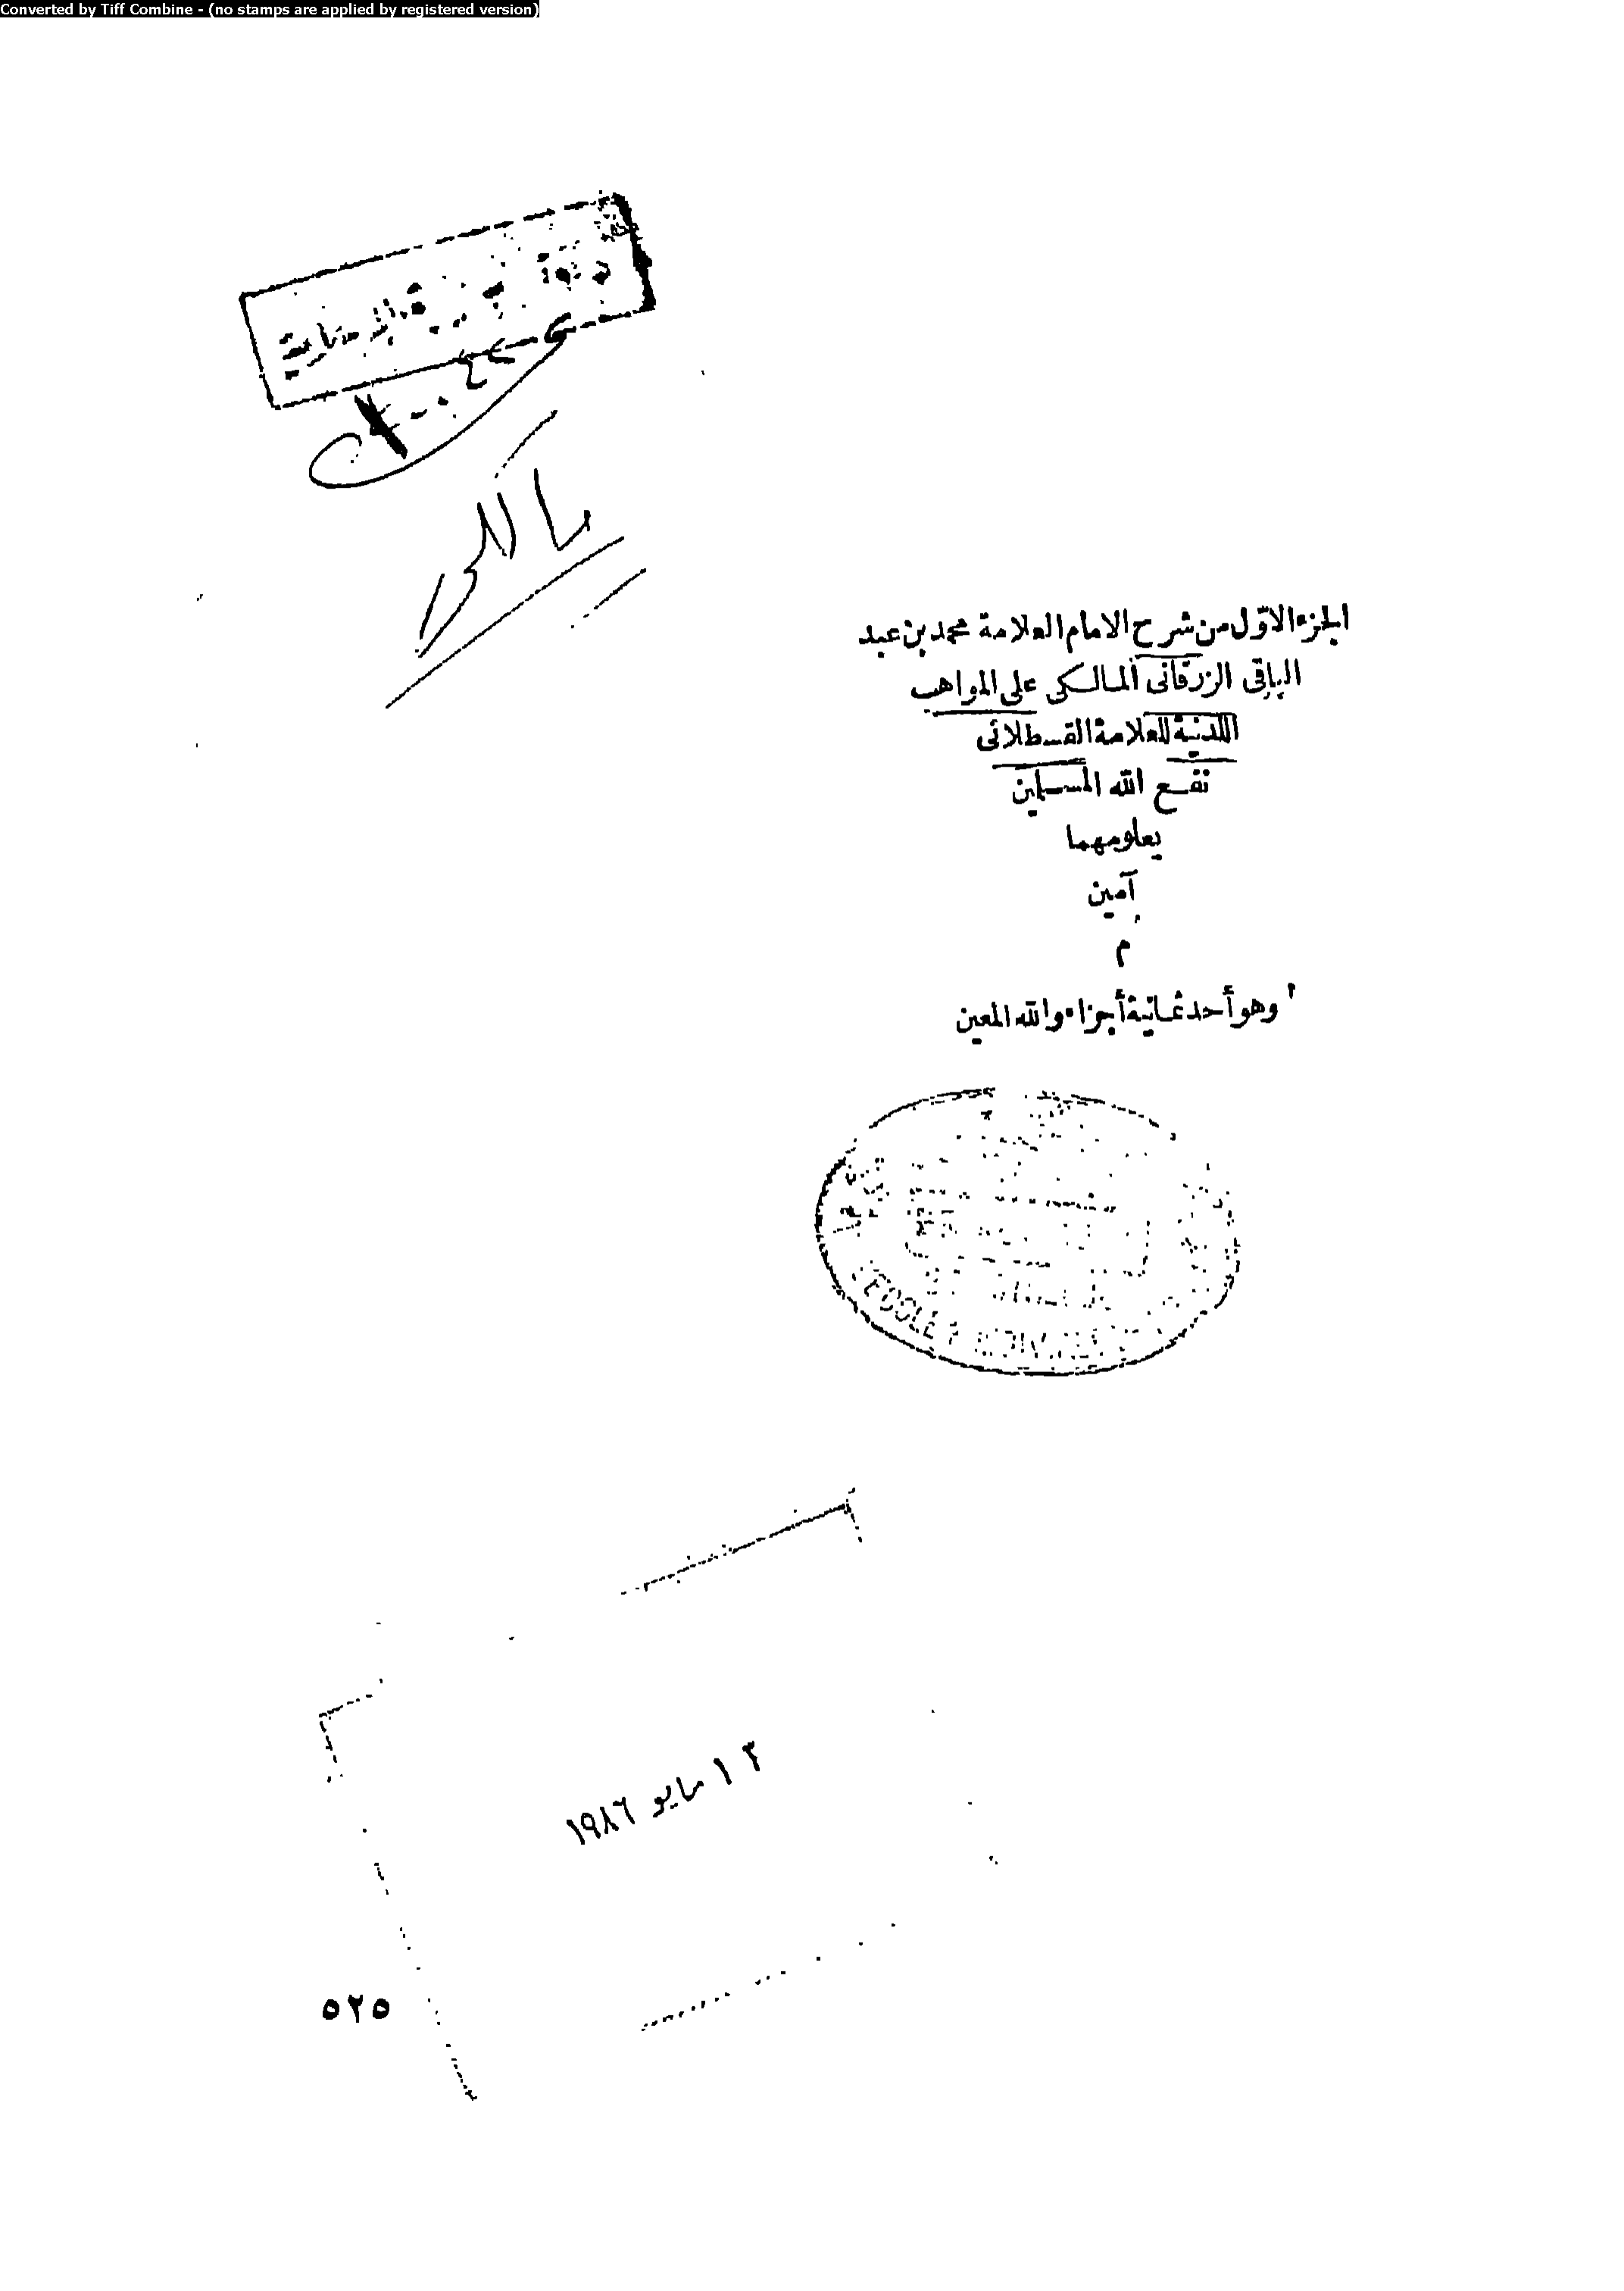 Converted by Tiff Combine - (no stamps are applied by registered version)
الجزء الاوّل من شرح الامام العلامة محمد بن عبد
الباقى الزرقانى المالكى على المواهب
اللدنية للعلامة القسطلانى
نفع الله المسلمين
بعلومهما
آمين
م
وهو أحد ثمانية أجزاء والله المعين
ECOLE
١٢ مايو ١٩٨٦
٥٢٥